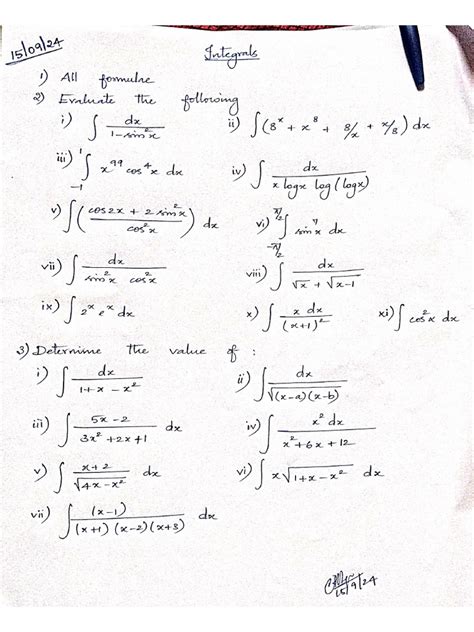 15/09/24
Integrals
1) All formulae
2) Evaluate the following
i) ∫ dx/(1-sin²x) ii) ∫(8ˣ + x⁸ + 8/x + x/8) dx
iii) ∫₋₁¹ x⁹⁹ cos⁴x dx iv) ∫ dx/(x logx log(logx))
v) ∫((cos2x + 2sin²x)/cos²x) dx vi) ∫_{-π/2}^{π/2} sin⁷x dx
vii) ∫ dx/(sin²x cos²x) viii) ∫ dx/(√x + √(x-1))
ix) ∫ 2ˣ eˣ dx x) ∫ x dx/(x+1)² xi) ∫ cos²x dx
3) Determine the value of :
i) ∫ dx/(1+x-x²) ii) ∫ dx/√((x-a)(x-b))
iii) ∫ (5x-2)/(3x²+2x+1) dx iv) ∫ x² dx/(x²+6x+12)
v) ∫ (x+2)/√(4x-x²) dx vi) ∫ x√(1+x-x²) dx
vii) ∫ (x-1)/((x+1)(x-2)(x+3)) dx
15/9/24